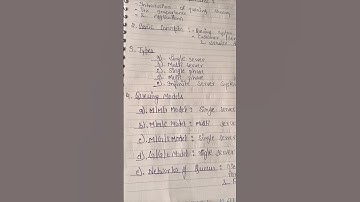 Introduction of Queuing theory
Its importance
Applications
2. Basic Concepts : Queuing System
Customer
Service
3. Types
a). Single Server
b). Multi Server
c). Single phase
d). Multi phase
e). Infinite Server System
4. Queuing Models
a). M/M/1 Model : Single Server
b). M/M/C Model : Multi Server
c). M/G/1 Model : Single Server
d). Model : Single Server
e). Networks of Queues :